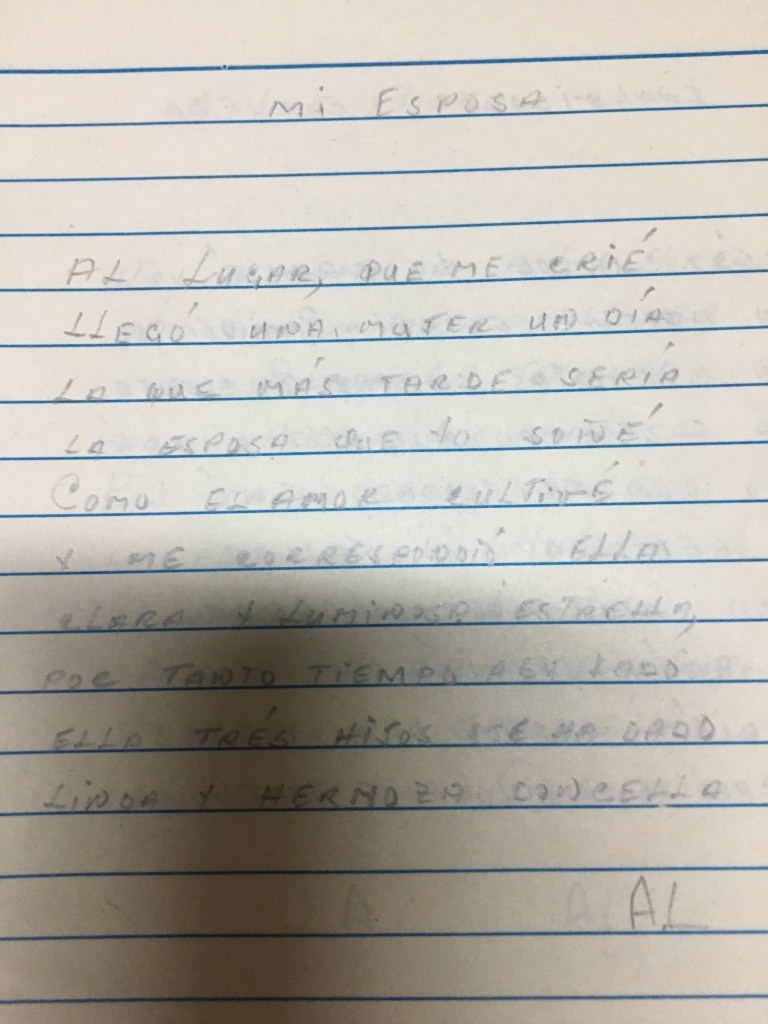 Mi ESPOSA
AL LUGAR, QUE ME CRIÉ
LLEGÓ UNA MUJER UN DÍA
LA QUE MÁS TARDE SERÍA
LA ESPOSA QUE YO SOÑÉ
COMO EL AMOR CULTIVÉ
Y ME CORRESPONDIÓ ELLA
CLARA Y LUMINOSA ESTRELLA,
POR TANTO TIEMPO A SU LADO
ELLA TRÉS HIJOS ME HA DADO
LINDA Y HERMOZA DONCELLA
AL